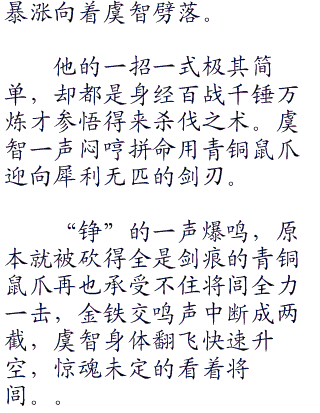 暴涨向着虞智劈落。
他的一招一式极其简
单，却都是身经百战千锤万
炼才参悟得来杀伐之术。虞
智一声闷哼拼命用青铜鼠爪
迎向犀利无匹的剑刃。
“铮”的一声爆鸣，原
本就被砍得全是剑痕的青铜
鼠爪再也承受不住将闾全力
一击，金铁交鸣声中断成两
截，虞智身体翻飞快速升
空，惊魂未定的看着将
闾。。